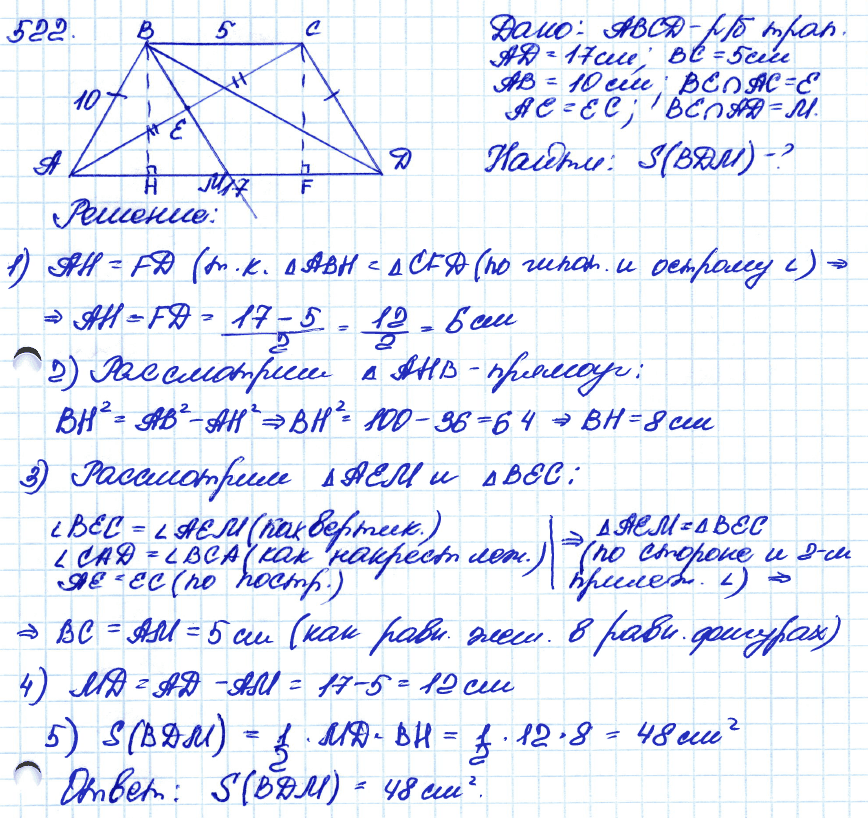 522.
B 5 C
10
A E D
H M 17 F
Дано: ABCD - р/б трап.
AD = 17 см; BC = 5 см
AB = 10 см; BE∩AC = E
AE = EC; BE∩AD = M.
Найти: S(BDM) - ?
Решение:
1) AH = FD (т.к. △ABH = △CFD (по гипот. и острому ∠) ⇒
⇒ AH = FD = (17 - 5)/2 = 12/2 = 6 см
2) Рассмотрим △ AHB - прямоуг:
BH² = AB² - AH² ⇒ BH² = 100 - 36 = 64 ⇒ BH = 8 см
3) Рассмотрим △AEM и △BEC:
∠BEC = ∠AEM (как вертик.)
∠CAD = ∠BCA (как накрест леж.)
AE = EC (по постр.)
⇒ △AEM = △BEC
(по стороне и 2-м
прилеж. ∠) ⇒
⇒ BC = AM = 5 см (как равн. элем. в равн. фигурах)
4) MD = AD - AM = 17 - 5 = 12 см
5) S(BDM) = 1/2 · MD · BH = 1/2 · 12 · 8 = 48 см²
Ответ: S(BDM) = 48 см².